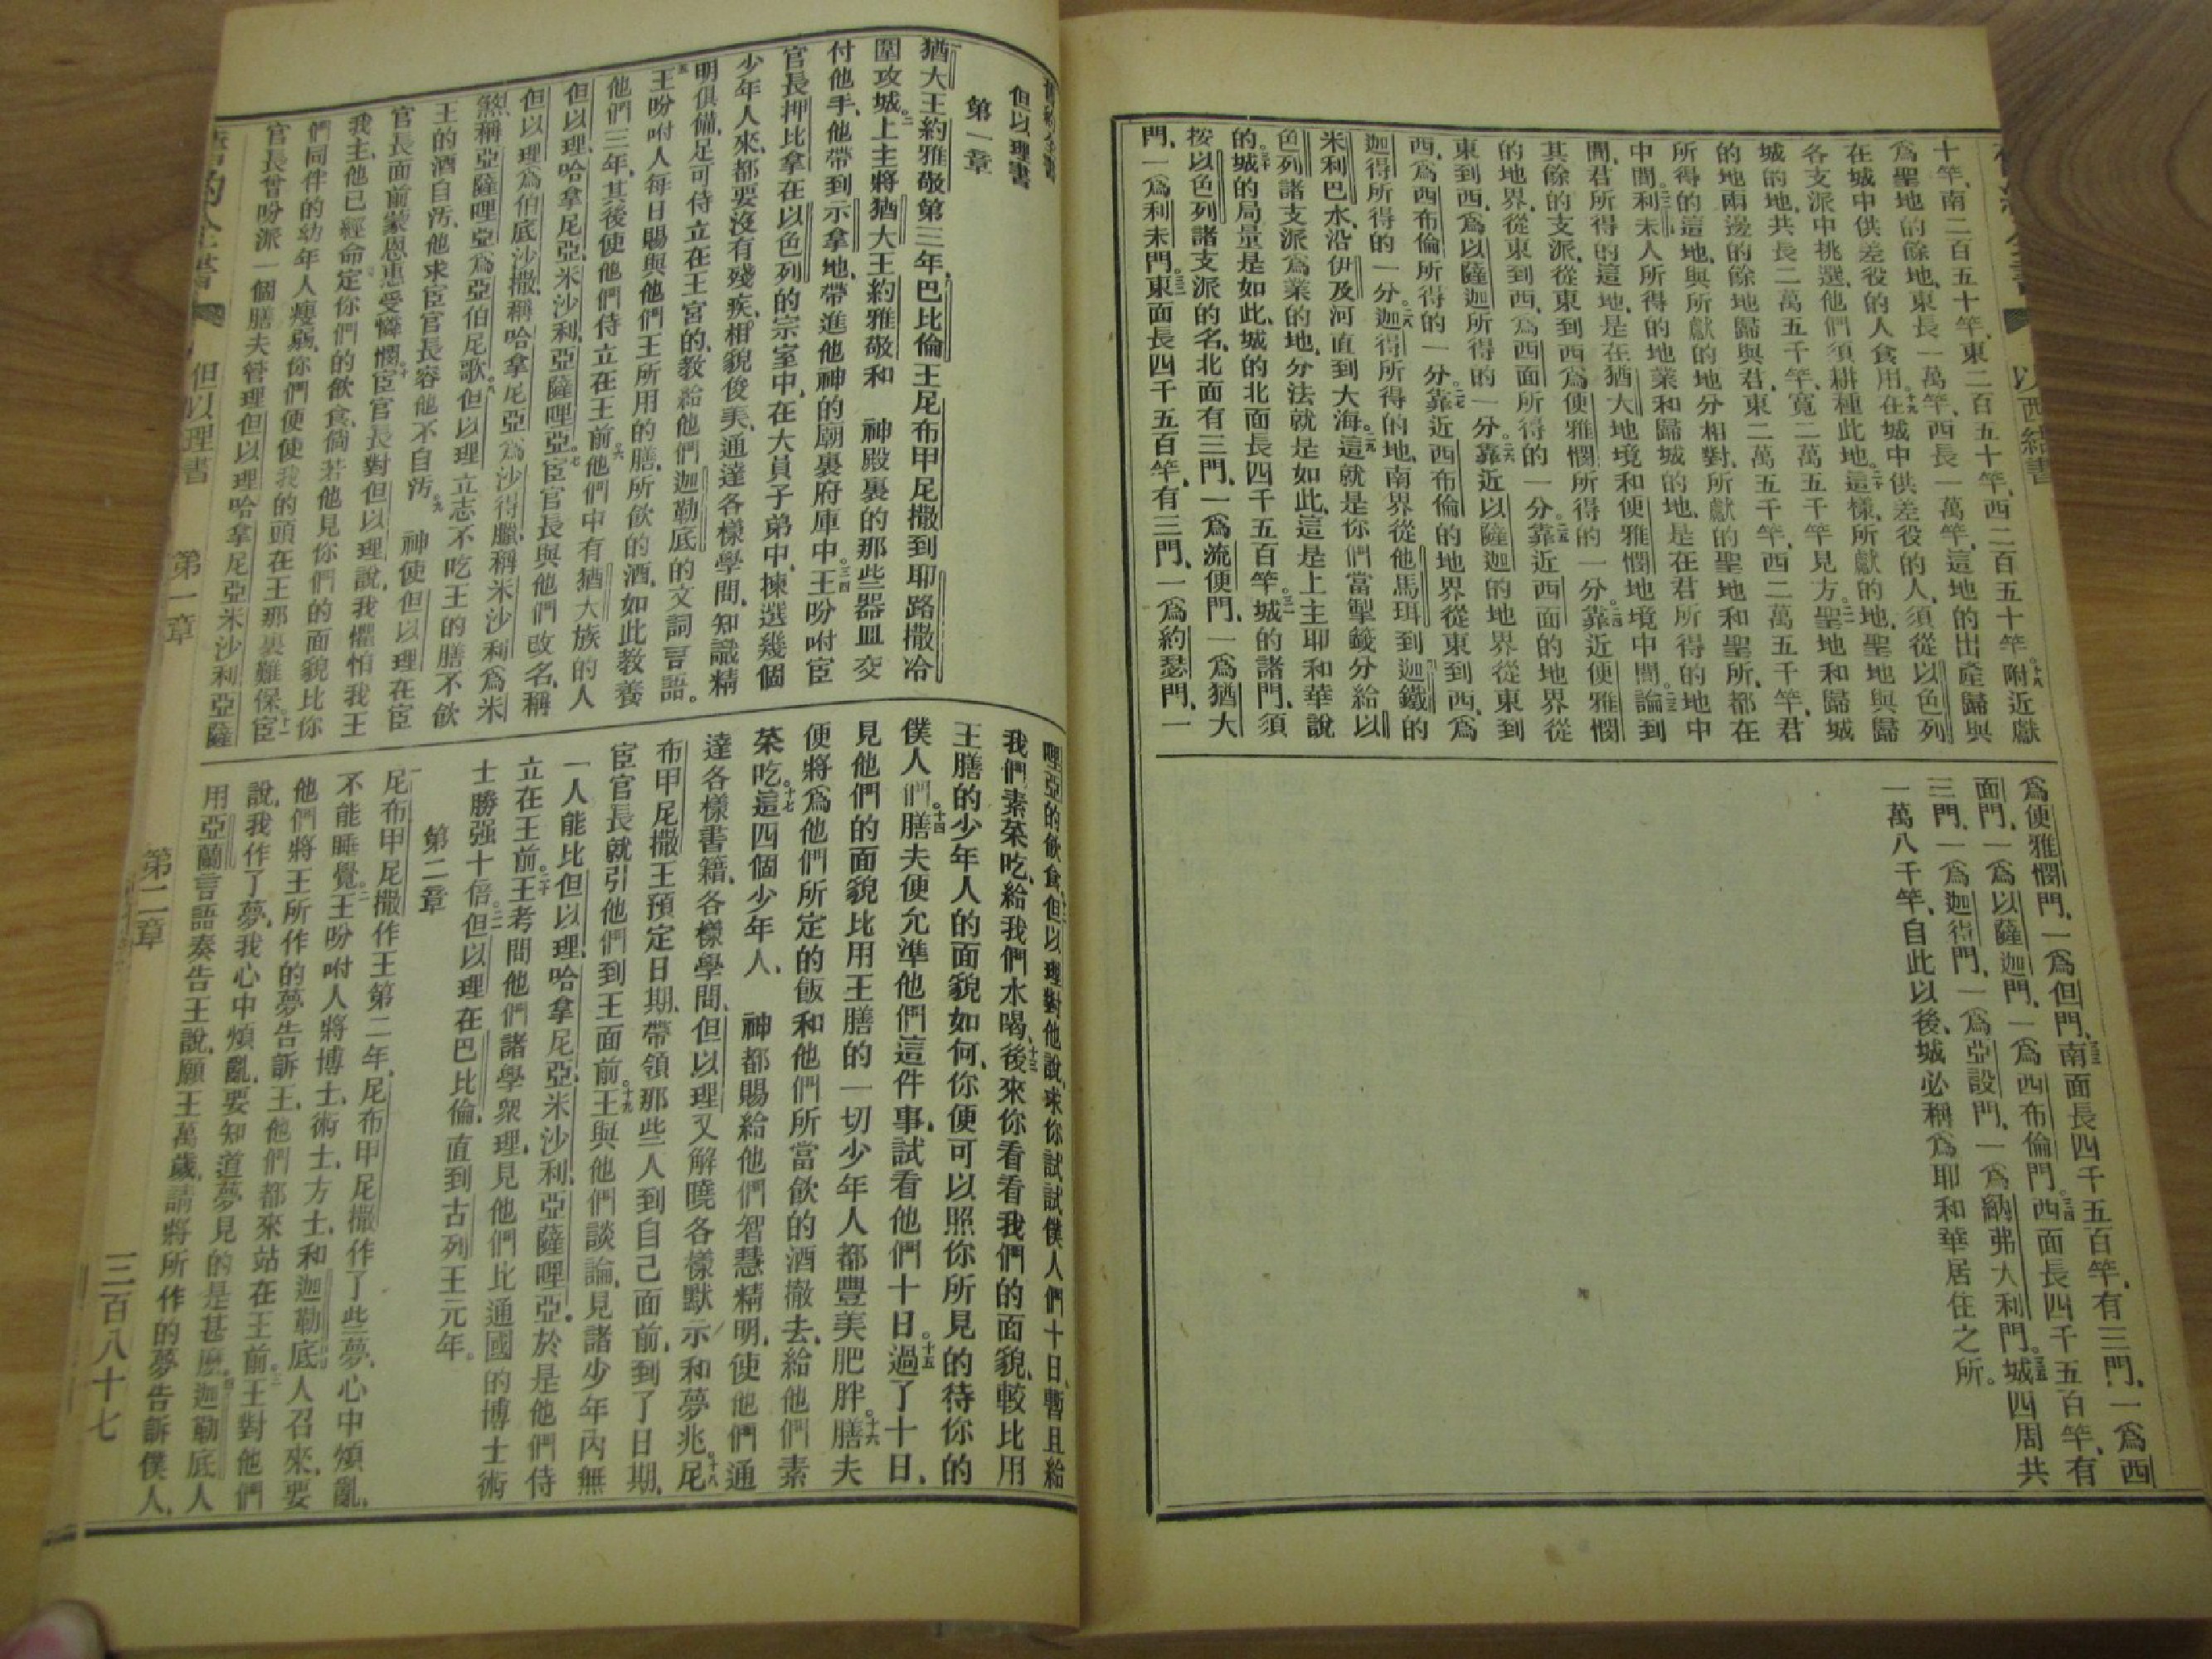 以西結書
十竿、南二百五十竿、東二百五十竿、西二百五十竿。十八附近獻
爲聖地的餘地、東長一萬竿、西長一萬竿、這地的出產歸與
在城中供差役的人食用。十九在城中供差役的人、須從以色列
各支派中挑選、他們須耕種此地。二十這樣、所獻的地、聖地與歸
城的地、共長二萬五千竿、寬二萬五千竿見方。二一聖地和歸城
的地兩邊的餘地歸與君、東二萬五千竿、西二萬五千竿、君
所得的這地、與所獻的地分相對、所獻的聖地和聖所、都在
中間。二二利未人所得的地業和歸城的地、是在君所得的地中
間、君所得的這地、是在猶大地境和便雅憫地境中間。二三論到
其餘的支派、從東到西、爲便雅憫所得的一分。二四靠近便雅憫
的地界、從東到西、爲西面所得的一分。二五靠近西面的地界從
東到西、爲以薩迦所得的一分。二六靠近以薩迦的地界從東到
西、爲西布倫所得的一分。二七靠近西布倫的地界從東到西、爲
迦得所得的一分。二八迦得所得的地、南界從他馬珥到迦鐵的
米利巴水、沿伊及河直到大海。二九這就是你們當掣籤分給以
色列諸支派爲業的地、分法就是如此、這是上主耶和華說
的。三十城的局量是如此、城的北面長四千五百竿。三一城的諸門、須
按以色列諸支派的名、北面有三門、一爲流便門、一爲猶大
門、一爲利未門。三二東面長四千五百竿、有三門、一爲約瑟門、一
爲便雅憫門、一爲但門。三三南面長四千五百竿、有三門、一爲西
面門、一爲以薩迦門、一爲西布倫門。三四西面長四千五百竿、有
三門、一爲迦得門、一爲亞設門、一爲納弗大利門。三五城四周共
一萬八千竿、自此以後、城必稱爲耶和華居住之所。
舊約全書
但以理書
第一章
一猶大王約雅敬第三年、巴比倫王尼布甲尼撒到耶路撒冷
圍攻城。二上主將猶大王約雅敬和 神殿裏的那些器皿交
付他手、他帶到示拿地、帶進他神的廟裏府庫中。三四王吩咐宦
官長押比拿在以色列的宗室中、在大員子弟中、揀選幾個
少年人來、都要沒有殘疾、相貌俊美、通達各樣學問、知識精
明俱備、足可侍立在王宮的、教給他們迦勒底的文詞言語。
五王吩咐人每日賜與他們王所用的膳、所飲的酒、如此教養
他們三年、其後使他們侍立在王前。六他們中有猶大族的人
但以理、哈拿尼亞、米沙利、亞薩哩亞。七宦官長與他們改名、稱
但以理爲伯底沙撒、稱哈拿尼亞爲沙得臘、稱米沙利爲米
煞、稱亞薩哩亞爲亞伯尼歌。八但以理立志不吃王的膳不飲
王的酒自汚、他求宦官長容他不自汚。九 神使但以理在宦
官長面前蒙恩惠受憐憫。十宦官長對但以理說、我懼怕我王
我主、他已經命定你們的飲食、倘若他見你們的面貌比你
們同伴的幼年人瘦弱、你們便使我的頭在王那裏難保。十一宦
官長曾吩派一個膳夫管理但以理哈拿尼亞米沙利亞薩
哩亞的飲食、十二但以理對他說、求你試試僕人們十日、暫且給
我們素菜吃、給我們水喝、十三後來你看看我們的面貌、較比用
王膳的少年人的面貌如何、你便可以照你所見的待你的
僕人們。十四膳夫便允準他們這件事、試看他們十日。十五過了十日、
見他們的面貌比用王膳的一切少年人都豐美肥胖。十六膳夫
便將爲他們所定的飯和他們所當飲的酒撤去、給他們素
菜吃。十七這四個少年人、 神都賜給他們智慧精明、使他們通
達各樣書籍、各樣學問、但以理又解曉各樣默示和夢兆。十八尼
布甲尼撒王預定日期、帶領那些人到自己面前、到了日期、
宦官長就引他們到王面前。十九王與他們談論、見諸少年內無
一人能比但以理、哈拿尼亞、米沙利、亞薩哩亞、於是他們侍
立在王前。二十王考問他們諸學衆理、見他們比通國的博士術
士勝强十倍。二一但以理在巴比倫、直到古列王元年。
第二章
尼布甲尼撒作王第二年、尼布甲尼撒作了些夢、心中煩亂、
不能睡覺。二王吩咐人將博士、術士、方士、和迦勒底人召來、要
他們將王所作的夢告訴王、他們都來站在王前。三王對他們
說、我作了夢、我心中煩亂、要知道夢見的是甚麼。四迦勒底人
用亞蘭言語奏告王說、願王萬歲、請將所作的夢告訴僕人、
舊約全書 但以理書 第一章 第二章 三百八十七